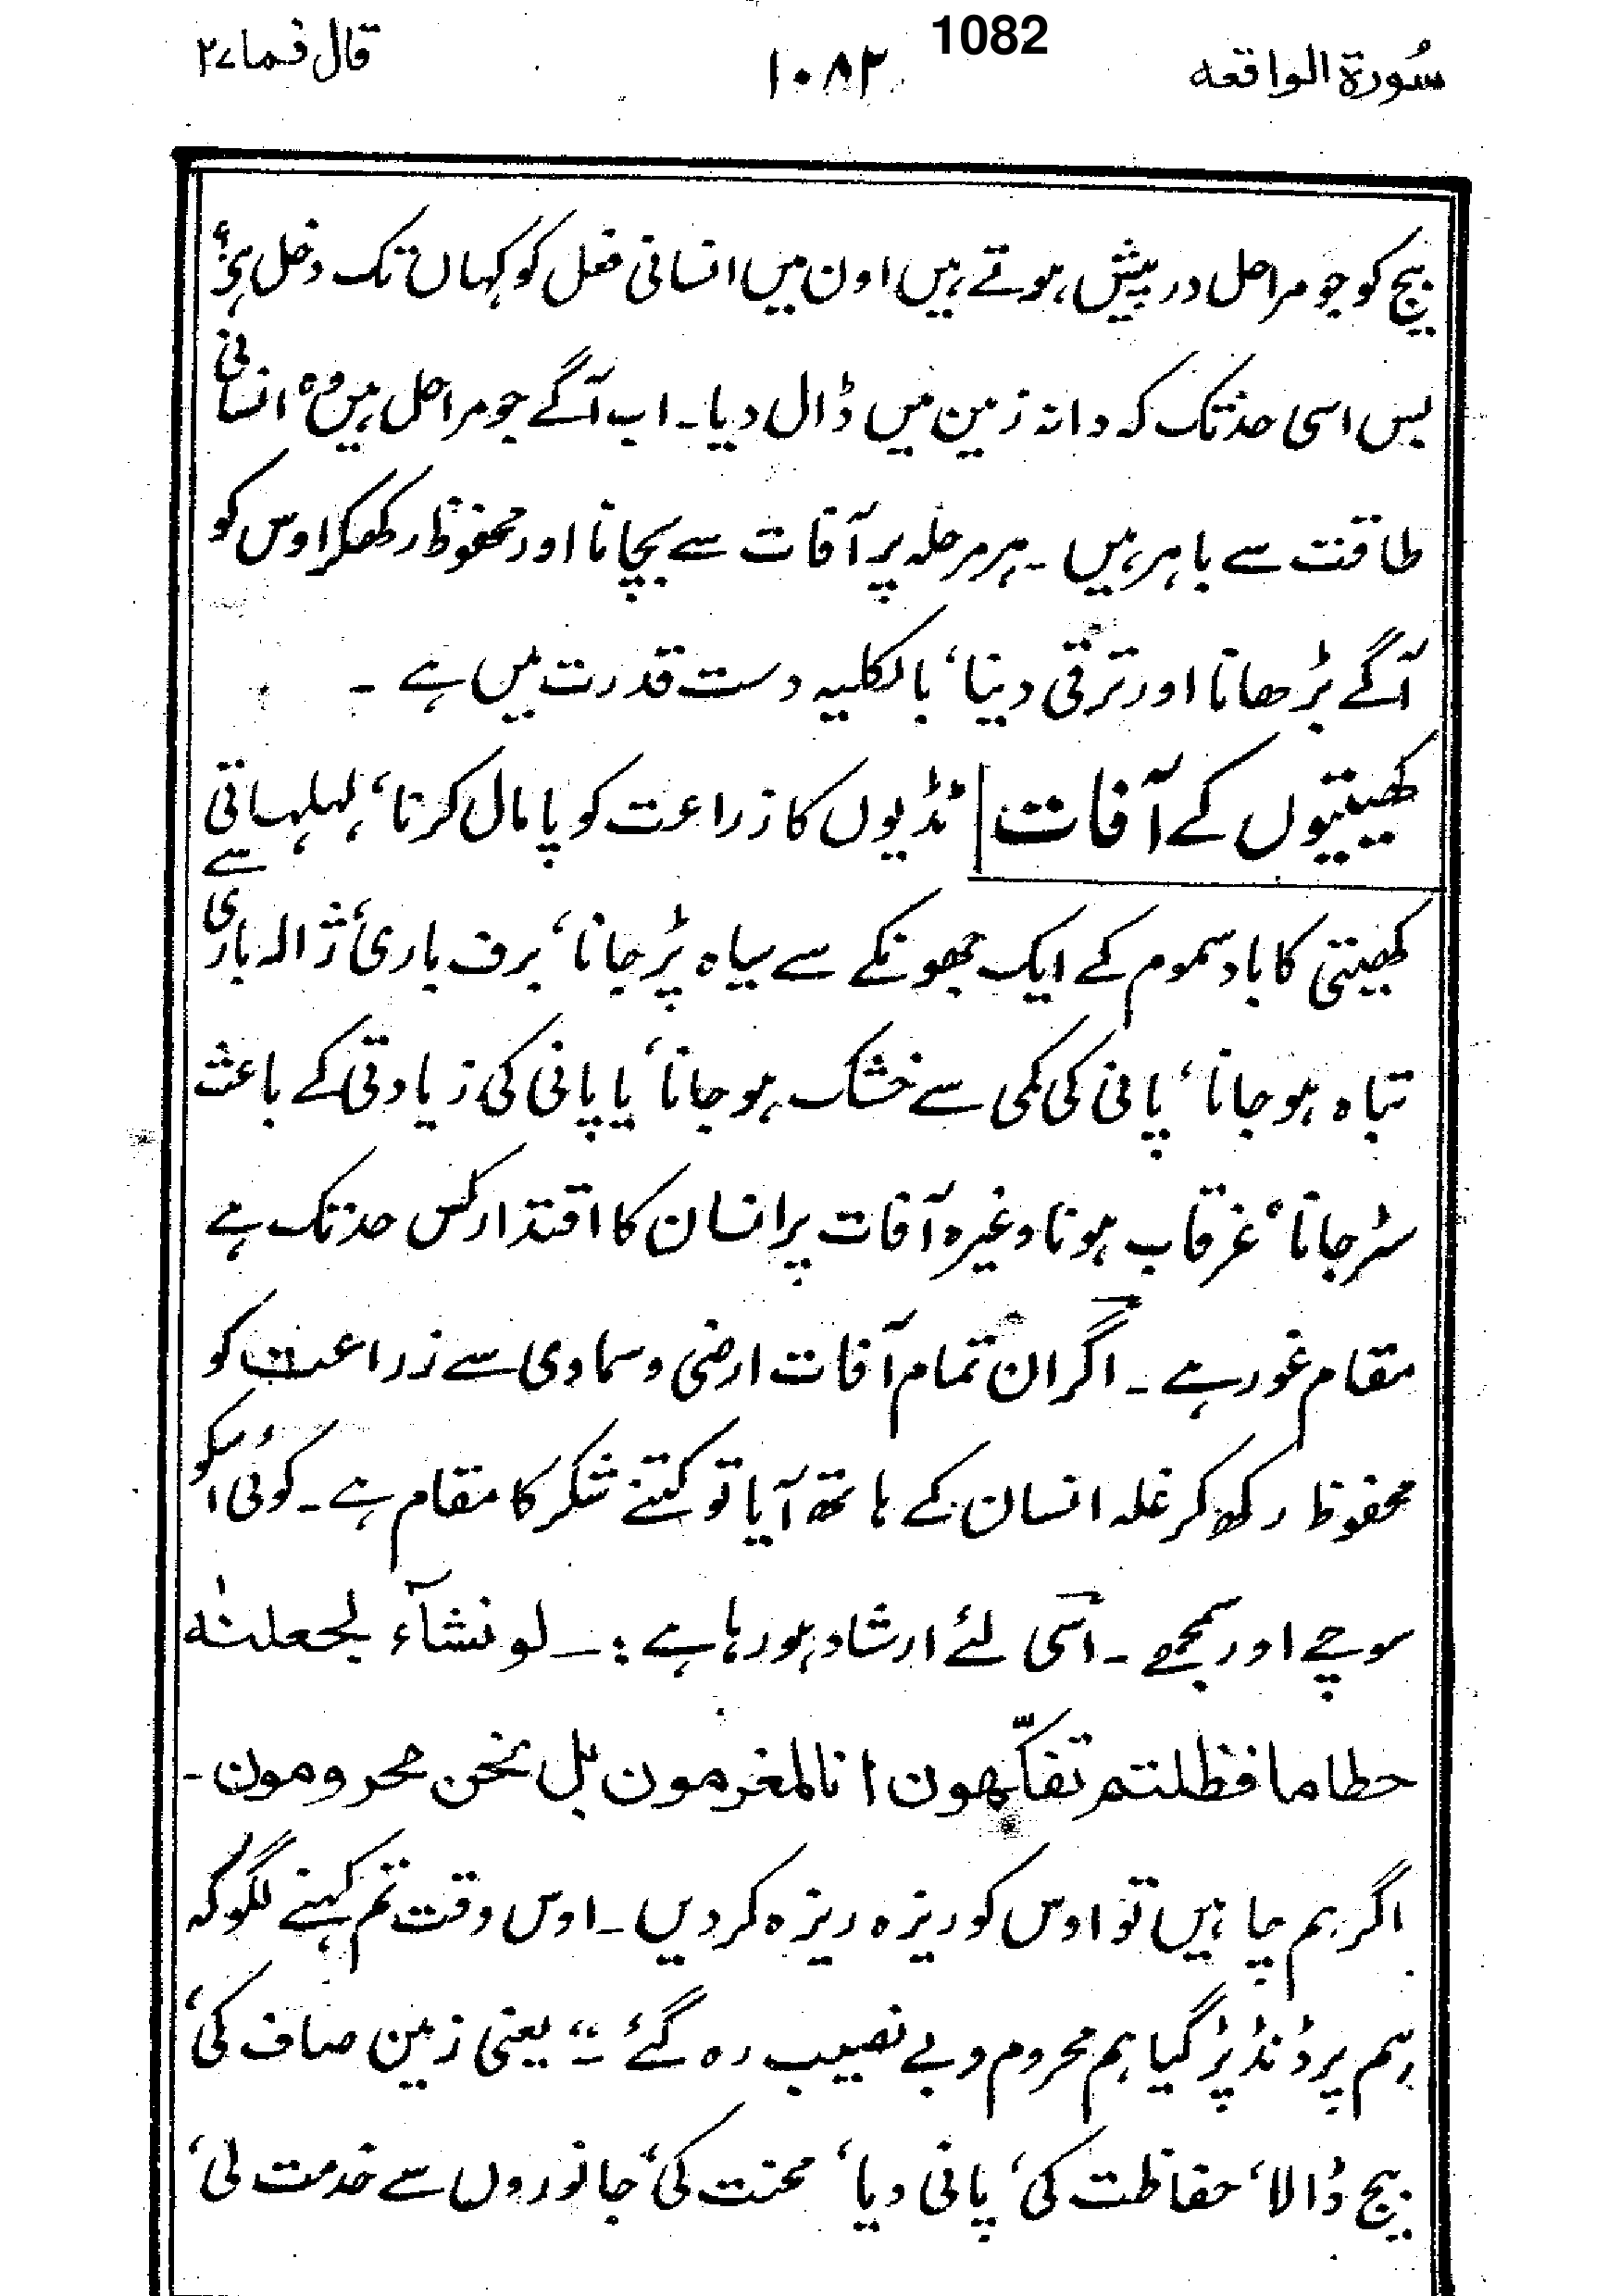 1082
سُورة الواقعه ۱۰۸۲ قال فما ۲۷
بیج کو جو مراحل درپیش ہوتے ہیں اون میں انسانی فعل کو کہاں تک دخل ہے؟
بس اسی حد تک کہ دانہ زمین میں ڈال دیا۔ اب آگے جو مراحل ہیں وہ انسانی
طاقت سے باہر ہیں۔ ہر مرحلہ پر آفات سے بچانا اور محفوظ رکھکر اوس کو
آگے بڑھانا اور ترقی دینا، بالکلیہ دست قدرت میں ہے۔
کھیتیوں کے آفات | ٹڈیوں کا زراعت کو پامال کرنا، لہلہاتی
کھیتی کا باد سموم کے ایک جھونکے سے سیاہ پڑ جانا، برف باری، ژالہ باری سے
تباہ ہو جانا، پانی کی کمی سے خشک ہو جانا، یا پانی کی زیادتی کے باعث
سڑ جانا، غرقاب ہونا وغیرہ آفات پر انسان کا اقتدار کس حد تک ہے
مقام غور ہے۔ اگر ان تمام آفات ارضی و سماوی سے زراعت کو
محفوظ رکھ کر غلہ انسان کے ہاتھ آیا تو کتنے شکر کا مقام ہے۔ کوئی اُسکو
سوچے اور سمجھے۔ اسی لئے ارشاد ہو رہا ہے :۔ لو نشآء لجعلنٰه
حطاما فظلتم تفكّهون انا لمغرمون بل نحن محرومون۔
اگر ہم چاہیں تو اوس کو ریزہ ریزہ کر دیں۔ اوس وقت تم کہنے لگو گے کہ
ہم پر ڈنڈ پڑ گیا ہم محروم و بے نصیب رہ گئے ۔" یعنی زمین صاف کی،
بیج ڈالا، حفاظت کی، پانی دیا، محنت کی، جانوروں سے خدمت لی،